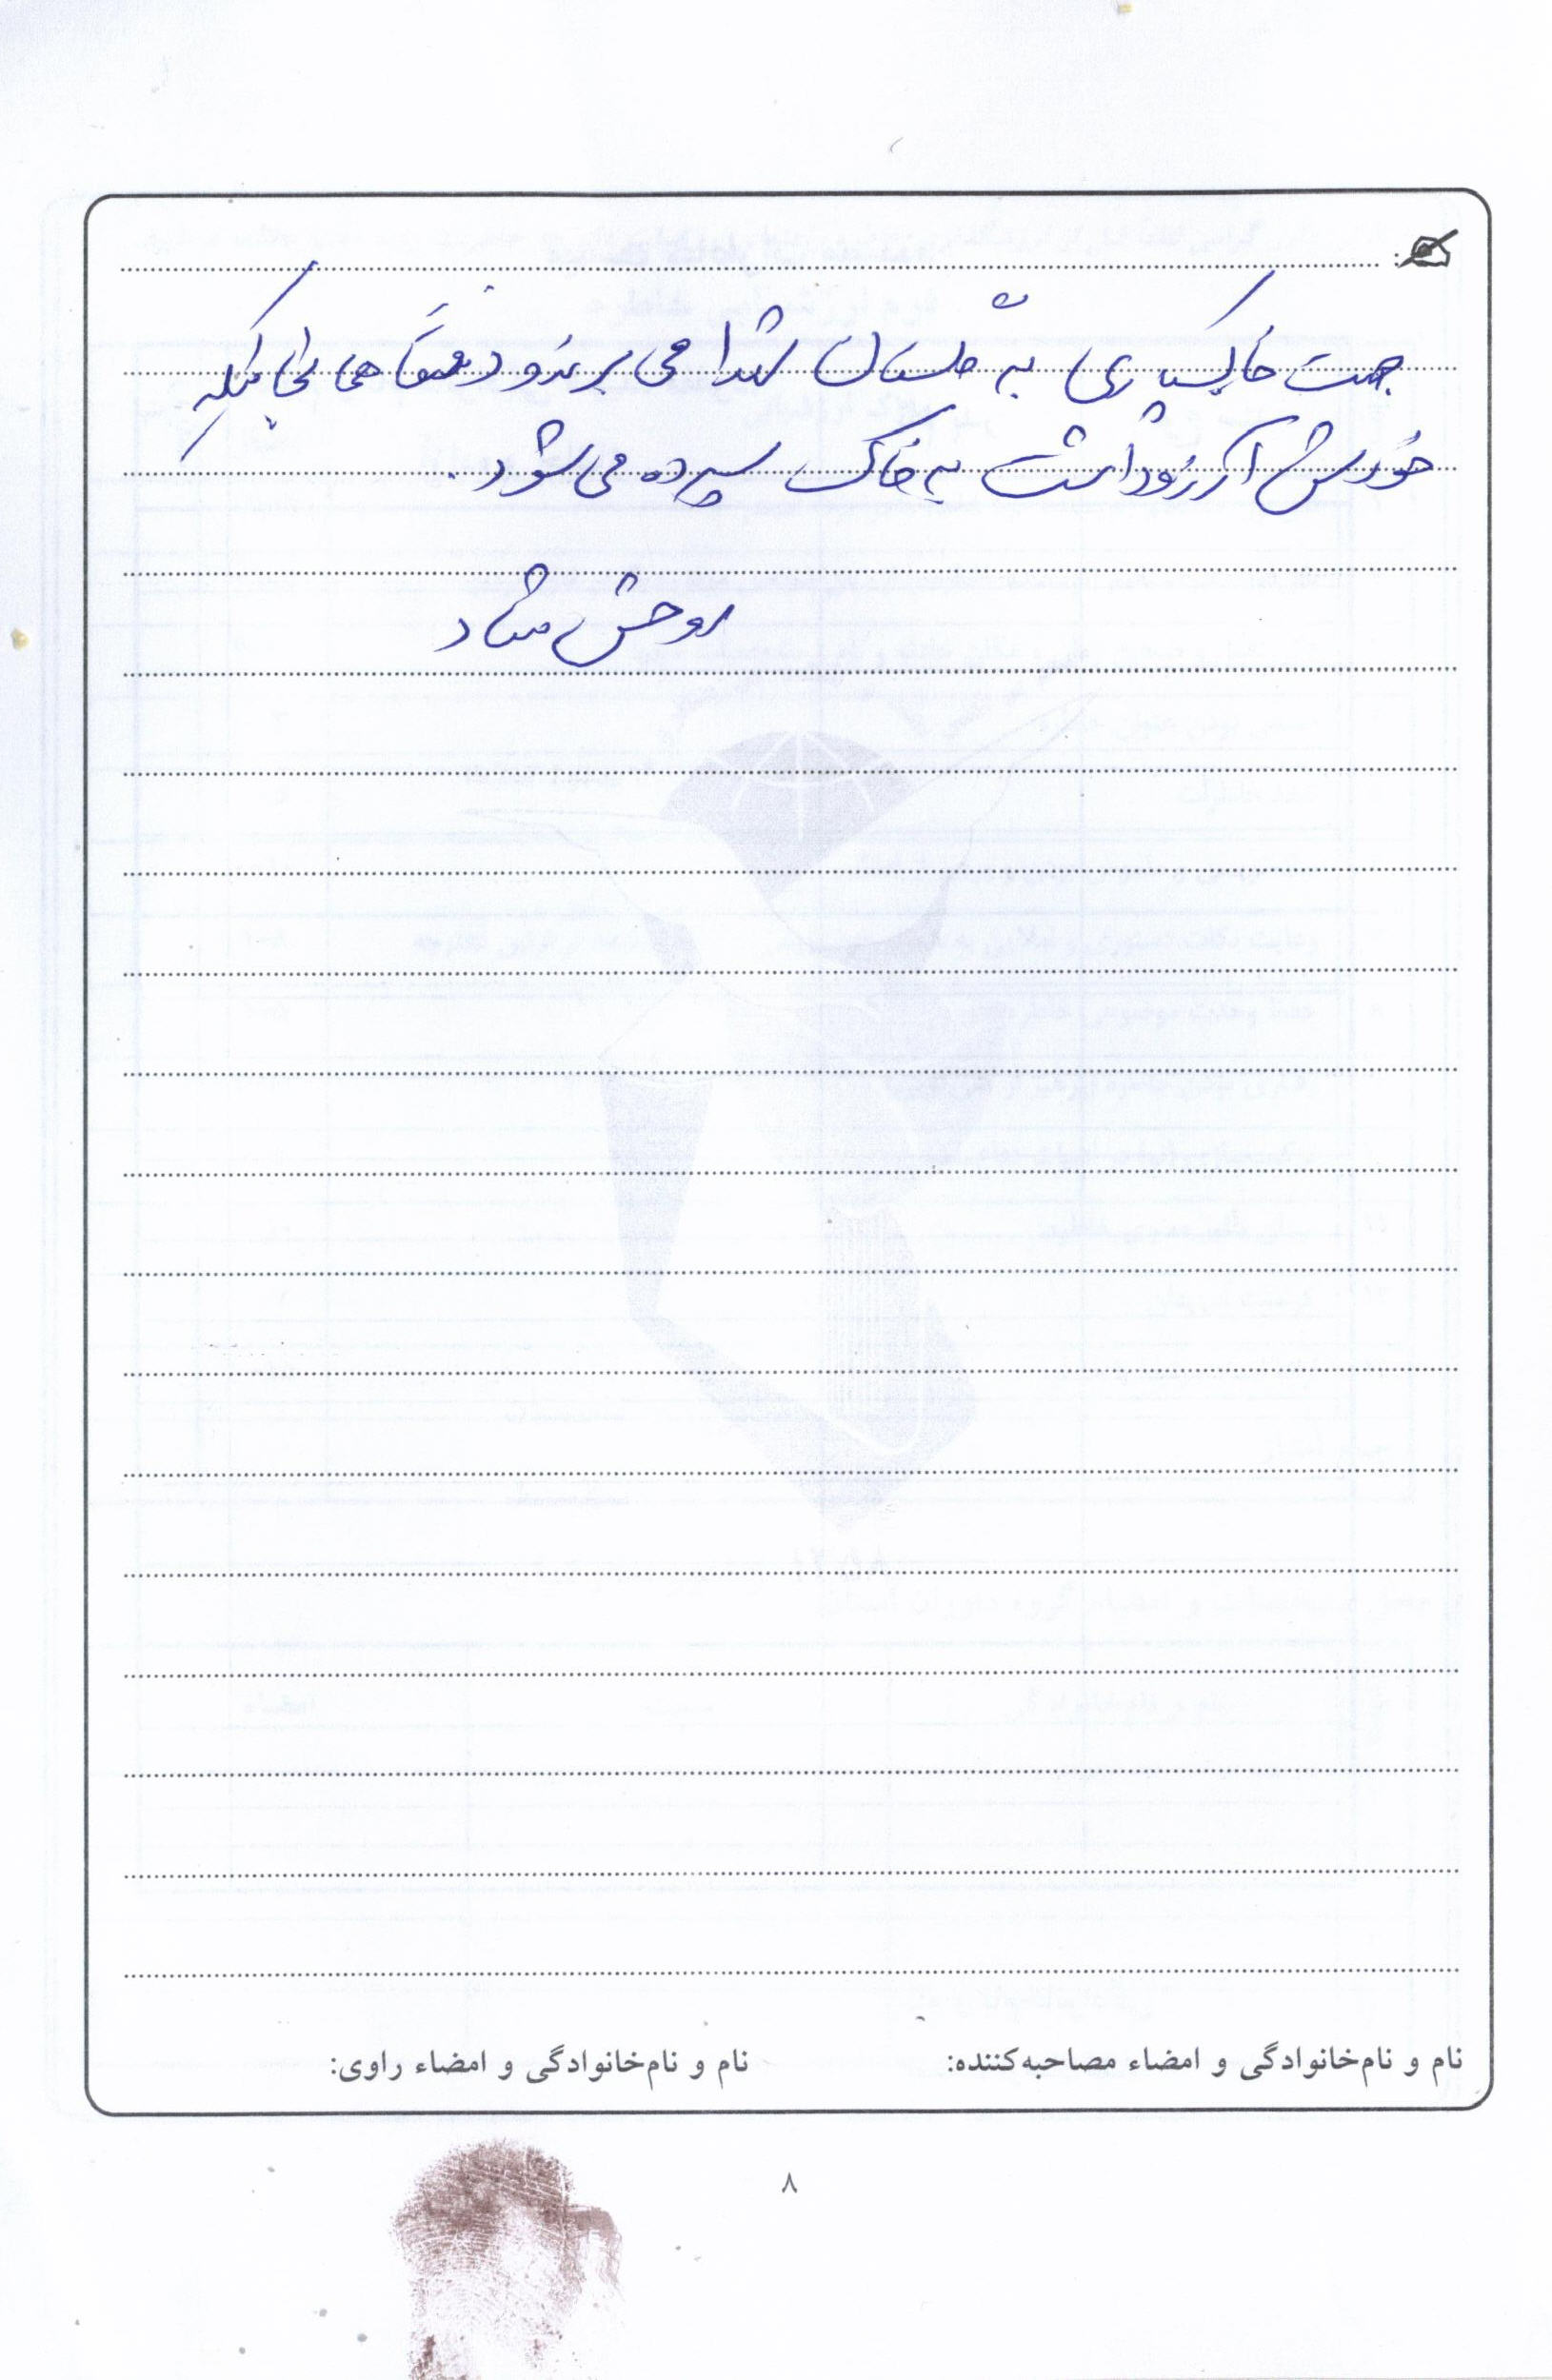 جهت خاکسپاری به گلستان شهدا می برند و در همان جایی که
خودش آرزو داشت به خاک سپرده می شود.
روحش شاد
نام و نام‌خانوادگی و امضاء مصاحبه‌کننده: نام و نام‌خانوادگی و امضاء راوی:
۸